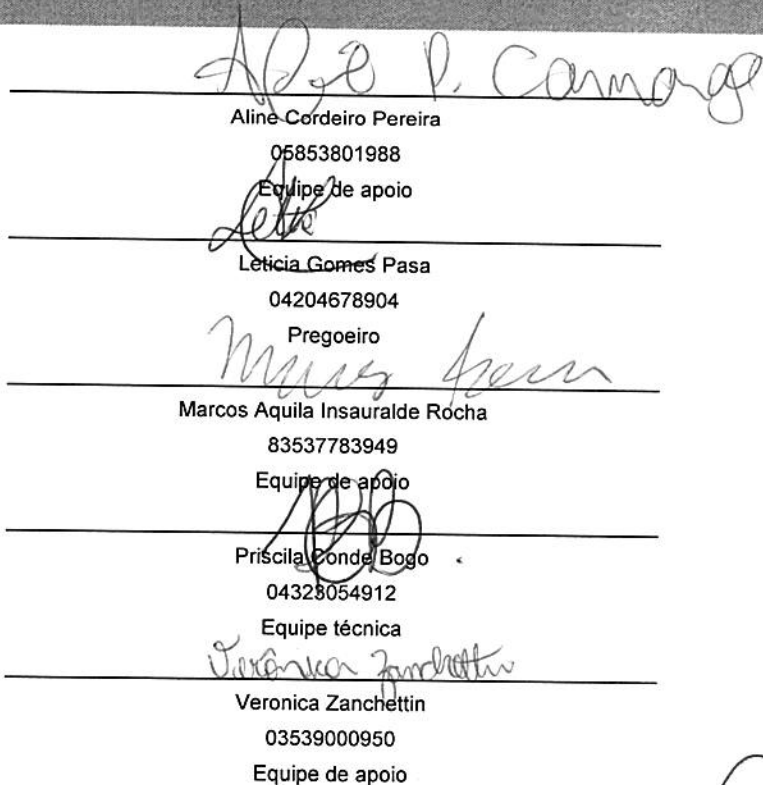 P. Camargo
Aline Cordeiro Pereira
05853801988
Equipe de apoio
Leticia Gomes Pasa
04204678904
Pregoeiro
Marcos Aquila Insauralde Rocha
83537783949
Equipe de apoio
Priscila Conde Bogo
04323054912
Equipe técnica
Verônica Zanchettin
Veronica Zanchettin
03539000950
Equipe de apoio